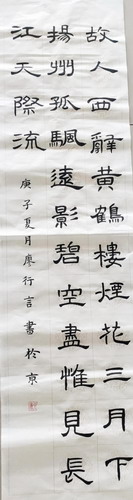 故人西辤黄鶴樓煙花三月下
揚州孤颿遠影碧空盡惟見長
江天際流
庚子夏月廖行言書於京